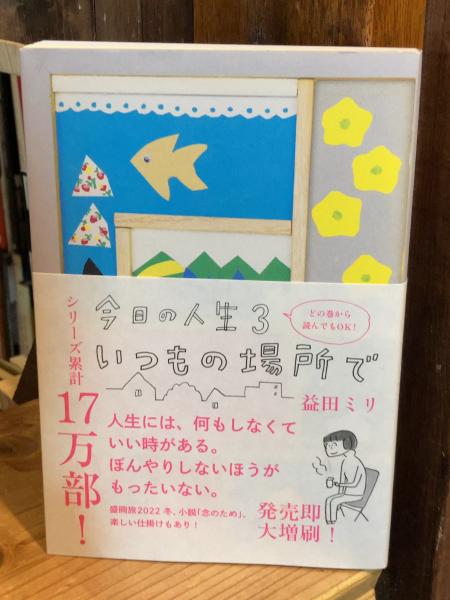 今日の人生3
どの巻から
読んでもOK!
いつもの場所で
益田ミリ
シリーズ累計
17万部!
人生には、何もしなくて
いい時がある。
ぼんやりしないほうが
もったいない。
盛岡旅2022冬、小説「念のため」、
楽しい仕掛けもあり!
発売即
大増刷!